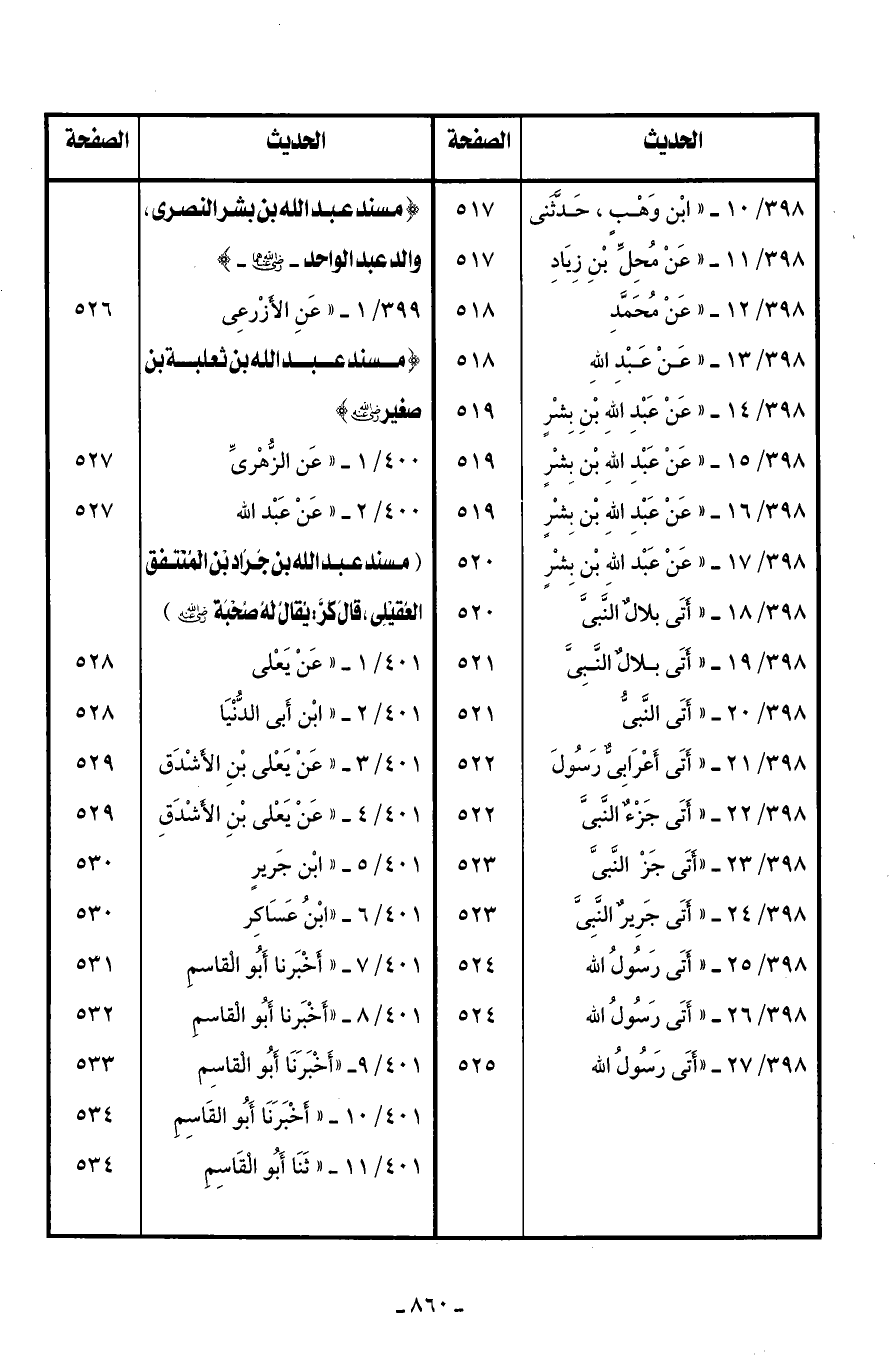 الحديث
الصفحة
٣٩٨/ ١٠ ـ « ابْن وَهْبٍ ، حَدَّثَنى
٥١٧
٣٩٨/ ١١ ـ « عَنْ مُحِلِّ بْنِ زِيَادٍ
٥١٧
٣٩٨/ ١٢ ـ « عَنْ مُحَمَّدِ
٥١٨
٣٩٨/ ١٣ ـ « عَـنْ عَـبْدِ اللهِ
٥١٨
٣٩٨/ ١٤ ـ « عَنْ عَبْدِ اللهِ بْنِ بِشْرٍ
٥١٩
٣٩٨/ ١٥ ـ « عَنْ عَبْدِ اللهِ بْنِ بِشْرٍ
٥١٩
٣٩٨/ ١٦ ـ « عَنْ عَبْدِ اللهِ بْنِ بِشْرٍ
٥١٩
٣٩٨/ ١٧ ـ « عَنْ عَبْدِ اللهِ بْنِ بِشْرٍ
٥٢٠
٣٩٨/ ١٨ ـ « أَتَى بِلالٌ النَّبىَّ
٥٢٠
٣٩٨/ ١٩ ـ « أَتَى بـلالٌ النَّـبِىَّ
٥٢١
٣٩٨/ ٢٠ ـ « أَتَى النَّبىُّ
٥٢١
٣٩٨/ ٢١ ـ « أَتَى أَعْرَابِىٌّ رَسُولَ
٥٢٢
٣٩٨/ ٢٢ ـ « أَتَى جَزْءٌ النَّبىَّ
٥٢٢
٣٩٨/ ٢٣ ـ «أَتَى جَزْ النَّبىَّ
٥٢٣
٣٩٨/ ٢٤ ـ « أَتَى جَرِيرٌ النَّبىَّ
٥٢٣
٣٩٨/ ٢٥ ـ « أَتَى رَسُولُ الله
٥٢٤
٣٩٨/ ٢٦ ـ « أَتَى رَسُولُ الله
٥٢٤
٣٩٨/ ٢٧ ـ «أَتَى رَسُولُ الله
٥٢٥
الحديث
الصفحة
﴿ مسند عبد الله بن بشر النصرى،
والد عبد الواحد ـ رضي الله عنهما ـ ﴾
٣٩٩/ ١ ـ « عَنِ الأَزْرعِى
٥٢٦
﴿ مـسند عـبـد الله بن ثعلبـة بن
صغير رضي الله عنه ﴾
٤٠٠/ ١ ـ « عَن الزُّهْرىِّ
٥٢٧
٤٠٠/ ٢ ـ « عَنْ عَبْد الله
٥٢٧
( مسند عبد الله بن جُرَاد بْن المُنْتَفق
العُقيْلِى ، قَال كرَّ : يُقَالُ لهُ صُحْبَة رضي الله عنه )
٤٠١/ ١ ـ « عَنْ يَعْلى
٥٢٨
٤٠١/ ٢ ـ « ابْن أَبى الدُّنْيَا
٥٢٨
٤٠١/ ٣ ـ « عَنْ يَعْلى بْنِ الأَشْدَق
٥٢٩
٤٠١/ ٤ ـ « عَنْ يَعْلى بْنِ الأَشْدَقِ
٥٢٩
٤٠١/ ٥ ـ « ابْن جَريرٍ
٥٣٠
٤٠١/ ٦ ـ «ابْنُ عَسَاكِر
٥٣٠
٤٠١/ ٧ ـ « أَخْبَرنا أَبُو الْقاسمِ
٥٣١
٤٠١/ ٨ ـ «أَخْبَرنا أَبُو الْقاسمِ
٥٣٢
٤٠١/ ٩ـ «أَخْبَرَنَا أَبُو الْقاسِم
٥٣٣
٤٠١/ ١٠ ـ « أَخْبَرَنَا أَبُو القَاسِمِ
٥٣٤
٤٠١/ ١١ ـ « ثَنَا أَبُو الْقَاسِمِ
٥٣٤
ـ ٨٦٠ ـ